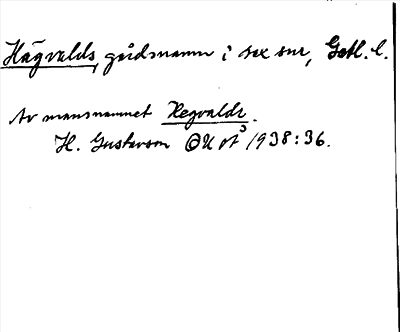 Hägvalds, gårdsnamn i sex snr, Gotl. l.
Av mansnamnet Hegvaldr.
H. Gustavson GUÅ³ 1938:36.